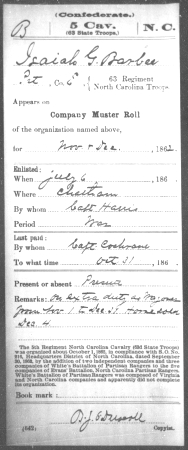 (Confederate.)
B 5 Cav. N. C.
(63 State Troops.)
Isaiah G. Barbee
Pvt, Co. 63 Regiment
North Carolina Troops.
Appears on
Company Muster Roll
of the organization named above,
for Nov & Dec, 1862
Enlisted:
When July 6, 186
Where Chatham
By whom Capt Harris
Period War
Last paid:
By whom Capt Cochrane
To what time Oct 31, 186
Present or absent Present
Remarks: On extra duty as
from Nov 1 to Dec 31
Dec 4.
The 5th Regiment North Carolina Cavalry (63d State Troops)
was organized about October 1, 1862, in compliance with S. O. No.
Headquarters District of North Carolina, dated September
30, 1862, by the addition of two independent companies and three
companies of White's Battalion of Partisan Rangers to the five
companies of Evans' Battalion, North Carolina Partisan Rangers.
White's Battalion of Partisan Rangers was composed of Virginia
and North Carolina companies and apparently did not complete
its organization.
Book mark:
(642) Copyist.